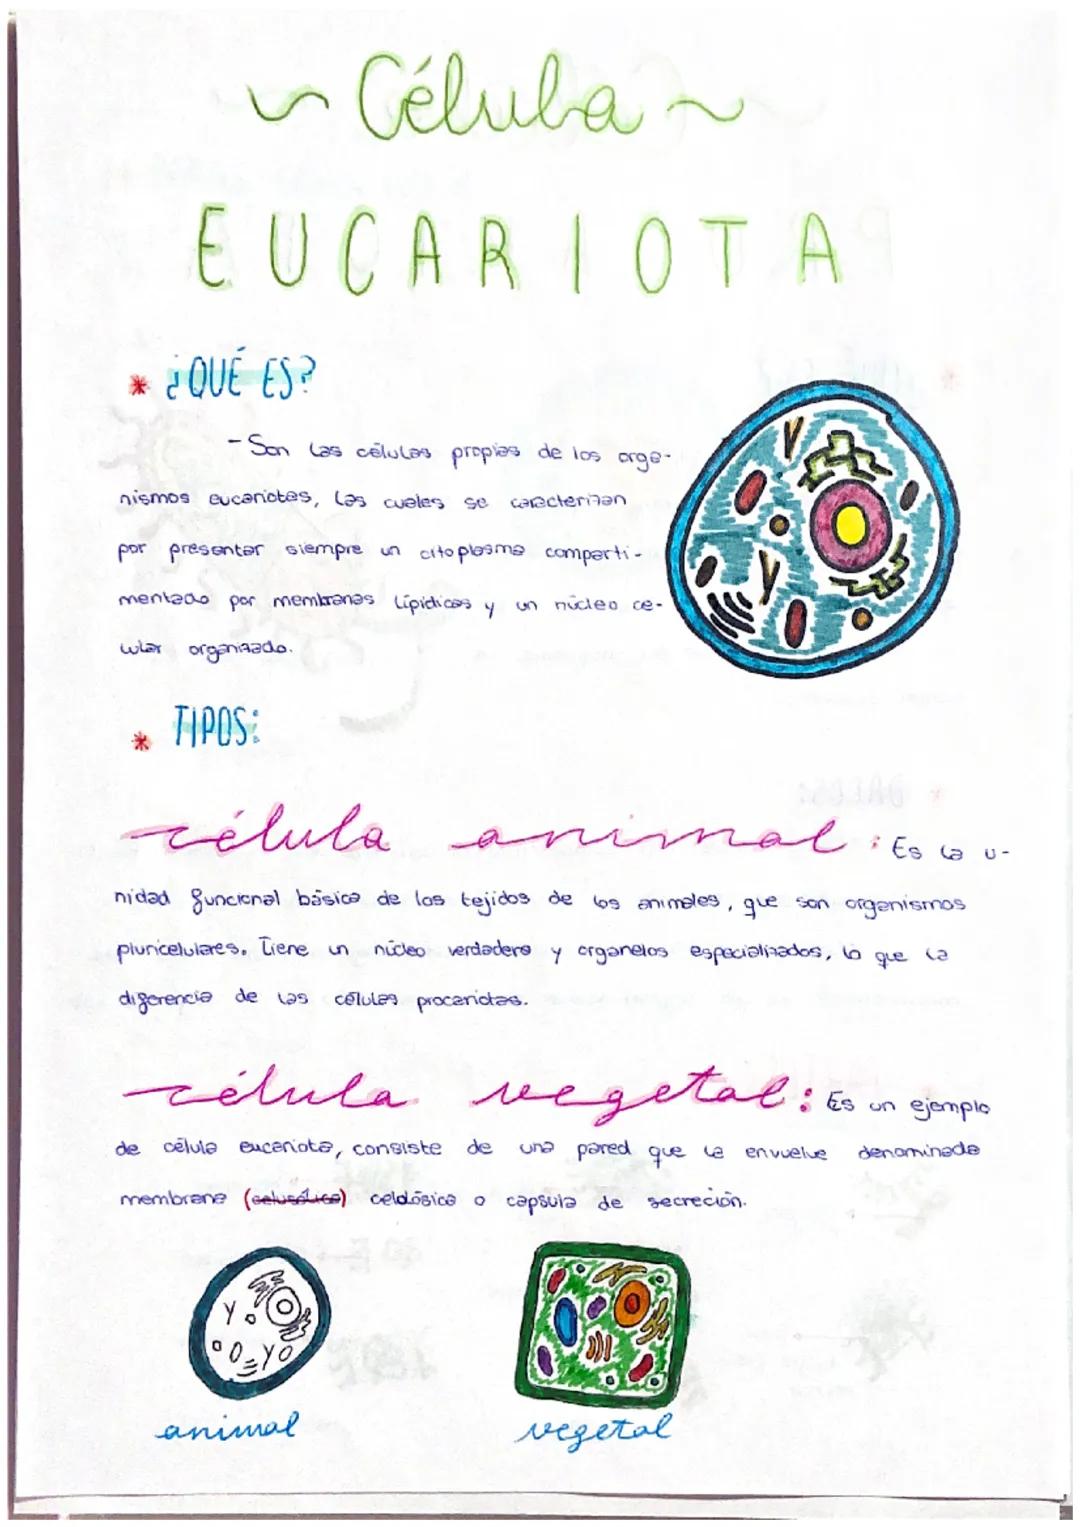 ~ Célula ~
EUCARIOTA
* ¿QUÉ ES?
- Son las células propias de los orga-
nismos eucariotas, las cuales se caracterizan
por presentar siempre un citoplasma comparti-
mentado por membranas lipídicas y un núcleo ce-
lular organizado.
* TIPOS:
célula animal: Es la u-
nidad funcional básica de los tejidos de los animales, que son organismos
pluricelulares. Tiene un núcleo verdadero y organelos especializados, lo que la
diferencia de las células procariotas.
célula vegetal: Es un ejemplo
de célula eucariota, consiste de una pared que la envuelve denominada
membrana (celusólica) celulósica o capsula de secreción.
animal
vegetal